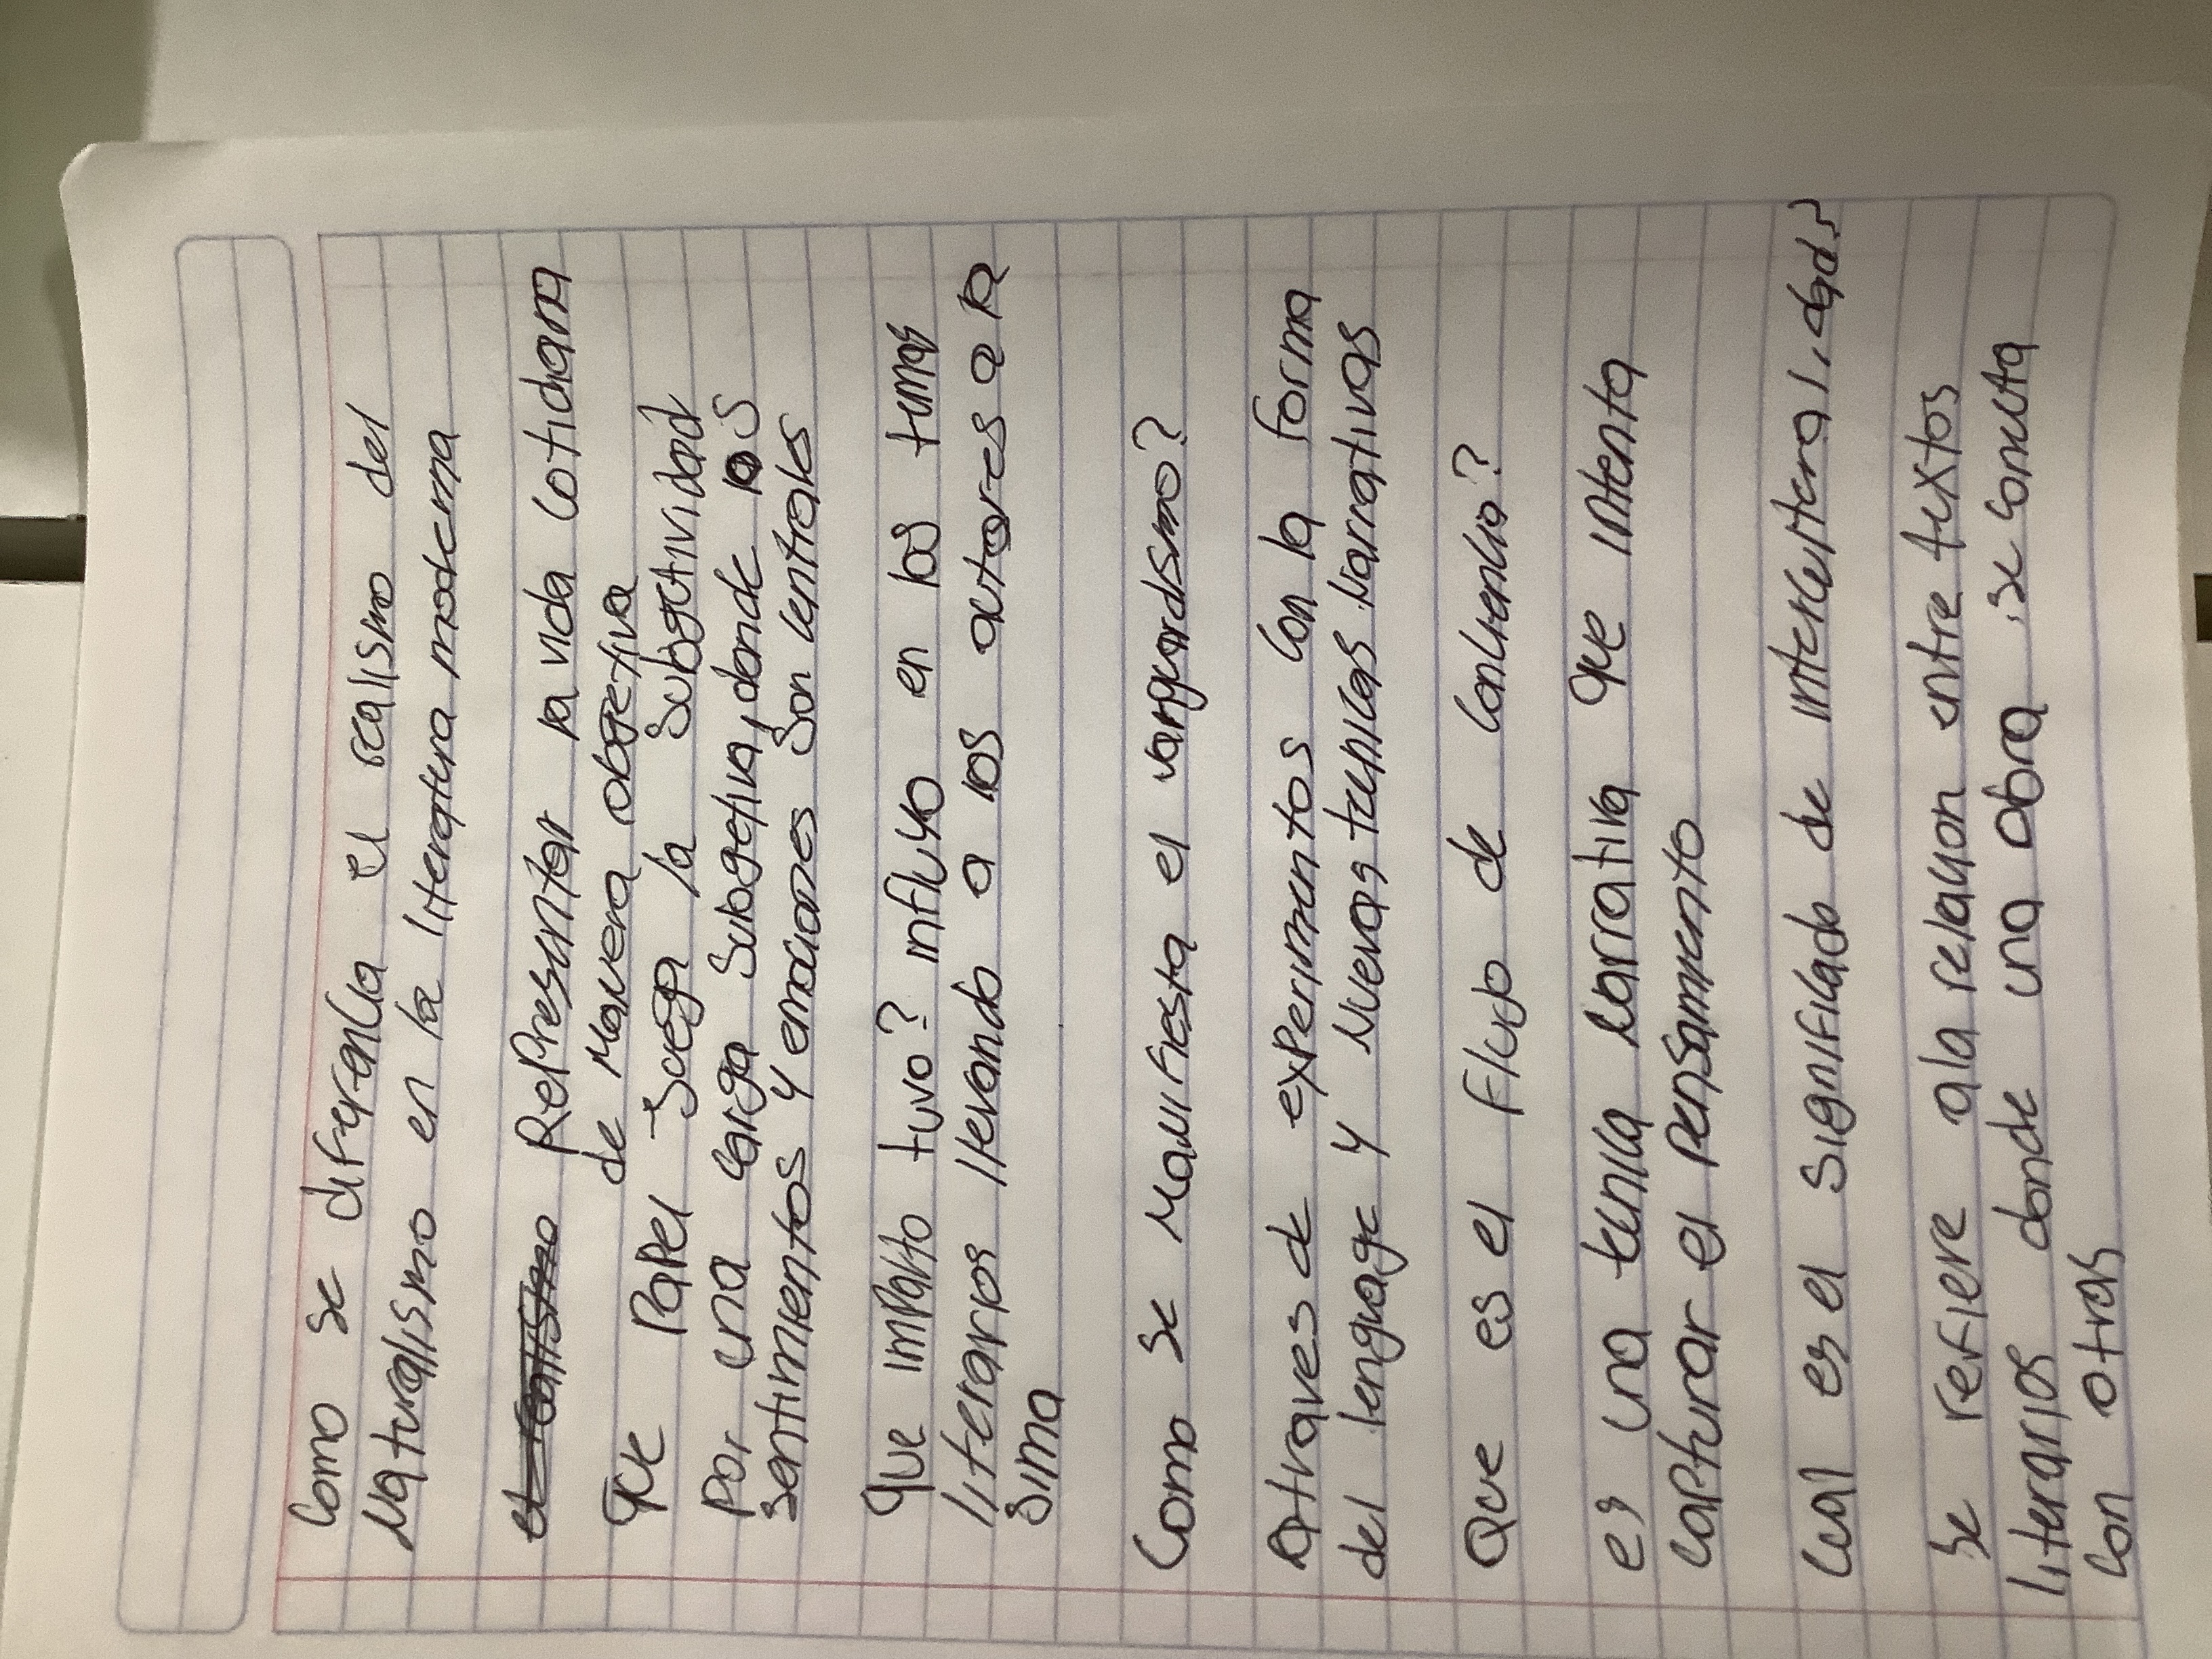 Como se diferencia el realismo del
Naturalismo en la literatura moderna
el realismo RePresentar la vida cotidiana
de Manera obgetiva
que PaPel Juega la Subgetividad
Por una carga Subgetiva, donde los
sentimientos y emociones Son centrales
que impacto tuvo? influyo en los temas
literarios llevando a los autores a la
sima
Como se Manifiesta el vanguardismo?
Atraves de experimentos con la forma
del lenguage y Nuevas tecnicas Narrativas
Que es el Flujo de conciencia?
es una tecnica Narrativa que intenta
capturar el Pensamiento
cual es el significado de
se refiere ala relacion entre textos
literarios donde una obra se conecta
con otras